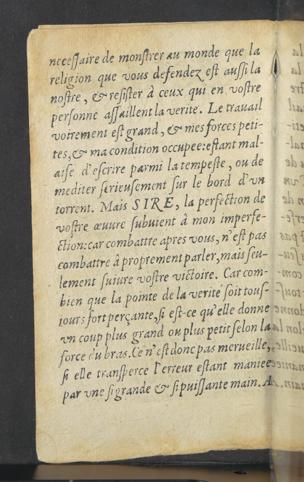 necessaire de monstrer au monde que la
religion que vous defendez est aussi la
nostre, & resister à ceux qui en vostre
personne assaillent la verite. Le travail
voirement est grand, & mes forces peti-
tes, & ma condition occupee: estant mal-
aise d'escrire parmi la tempeste, ou de
mediter serieusement sur le bord d'vn
torrent. Mais SIRE, la perfection de
vostre œuvre subuient à mon imperfe-
ction: car combattre apres vous, n'est pas
combattre à proprement parler, mais seu-
lement suiure vostre victoire. Car com-
bien que la pointe de la verité soit tous-
iours fort perçante, si est-ce qu'elle donne
vn coup plus grand ou plus petit selon la
force du bras. Ce n'est donc pas merueille,
si elle transperce l'erreur estant maniee
par vne si grande & si puissante main. A